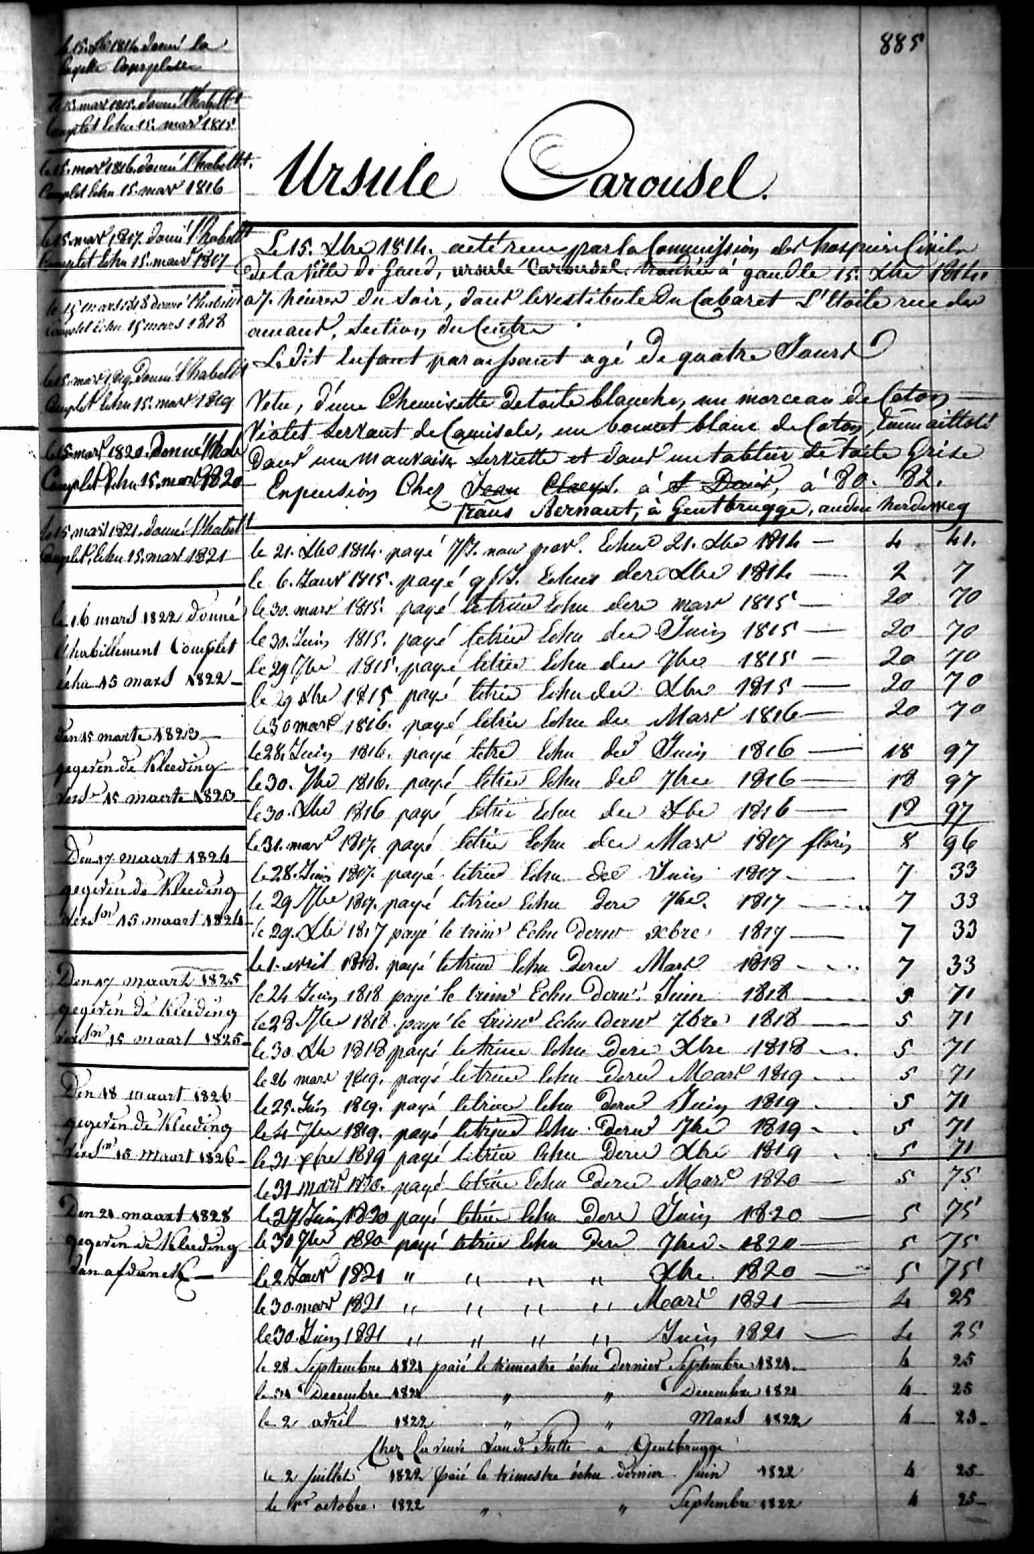 885
le 15 Xbre 1814 donné la
Layette Complette
le 15 mars 1815. donné l'habillt
Complet Echu 15. mars 1815
le 15. mars 1816. donné l'habillt.
Complet Echu 15. mars 1816
le 15. mars 1817. donné l'habillt
Complet Echu 15. mars 1817
le 15 mars 1818 donné l'habillt
Complet Echu 15 mars 1818
le 15. mars 1819. Donné l'habillt
Complet Echu 15. mars 1819
le 15. mars 1820. Donné l'habt
Complet Echu 15. mars 1820
le 15 mars 1821. donné l'habillt
Complet, Echu 15. mars 1821
le 16 mars 1822 donné
l'habillement Complet
échu 15 mars 1822
Den 15 marte 1823
gegeven de Kleeding
15 maerte 1823
Den 17 maart 1824
gegeven de Kleeding
15 maart 1824
Den 17 maart 1825
gegeven de Kleeding
15 maart 1825
Den 18 maart 1826
gegeven de Kleeding
15 maart 1826
Den 21 maart 1828
gegeven de Kleeding
van afdanck
Ursule Carousel.
Le 15. Xbre 1814. a été reçu par la Commission des hospices Civils
de la Ville de Gand, ursule Carousel. trouvée à gand le 15. Xbre 1814.
a 7. heures du Soir, dans le vestibule du Cabaret L'Etoile rue des
, Section du Centre.
Le dit Enfant paraissant agé de quatre Jours
Vetu, d'une Chemisette de toile blanche, un morceau de Coton
Violet Servant de Camisole, un bonnet blanc de Coton, Emmaillotté
Dans une mauvaise Serviette et dans un tablier de toile Grise
En pension Chez Jean Claeys. à St Denis, à 80. 82.
frans Bernaut, à Gentbrugge, au den herdeweg
le 21. Xbre 1814. payé 17/J. nour. par. Echus 21. Xbre 1814 4 41.
le 6. Janv 1815. payé 9/J. Echus dere Xbre 1814 2 7
le 30. mars 1815. payé le trim Echu dere mars 1815 20 70
le 30. Juin 1815. payé letrim Echu der Juin 1815 20 70
le 29 7bre 1815. payé letrim Echu der 7bre 1815 20 70
le 29 Xbre 1815 payé letrim Echu der Xbre 1815 20 70
le 30 mars 1816. payé, letrim Echu der Mars 1816 20 70
le 28. Juin 1816. payé letre Echu der Juin 1816 18 97
le 30. 7bre 1816. payé letrim Echu der 7bre 1816 18 97
le 30. Xbre 1816 payé letrim Echu der Xbre 1816 18 97
le 31. mars 1817. payé letrim Echu der Mars 1817 florins 8 96
le 28. Juin 1817. payé letrim Echu der Juin 1817 7 33
le 29 7bre 1817. payé letrim Echu dere 7bre. 1817 7 33
le 29. Xbre 1817 payé le trimr Echu dernr xbre 1817 7 33
le 1. avril 1818. payé letrim Echu dere Mars 1818 7 33
le 24 Juin 1818 payé le trimr Echu dernr. Juin 1818 5 71
le 28 7bre 1818. payé le trimr Echu dernr 7bre 1818 5 71
le 30. Xbre 1818 payé letrim Echu dere Xbre 1818 5 71
le 26 mars 1819. payé letrim Echu dere Mars 1819 5 71
le 25. Juin 1819. payé letrim Echu dere Juin 1819 5 71
le 4 7bre 1819. payé letrim Echu dere 7bre 1819 5 71
le 31 xbre 1819 payé letrim Echu Dere Xbre 1819 5 71
le 31 mars 1820. payé letrim Echu dere Mars 1820 5 75
le 27 Juin 1820 payé letrim Echu dere Juin 1820 5 75
le 30 7bre 1820 payé letrim Echu dere 7bre. 1820 5 75
le 2 Janv 1821 " " " " Xbre. 1820 5 75
le 30. mars 1821 " " " " Mars 1821 4 25
le 30. Juin 1821 " " " " Juin 1821 4 25
le 28 Septembre 1821 paié le trimestre échu dernier Septembre 1821 4 25
le 31 Decembre 1821 " " Decembre 1821 4 25
le 2 avril 1822 " " Mars 1822 4 25
Chez la veuve Van de Putte à Gentbrugge
le 2 juillet 1822 paié le trimestre échu dernier Juin 1822 4 25
le 1er octobre. 1822 " " Septembre 1822 4 25